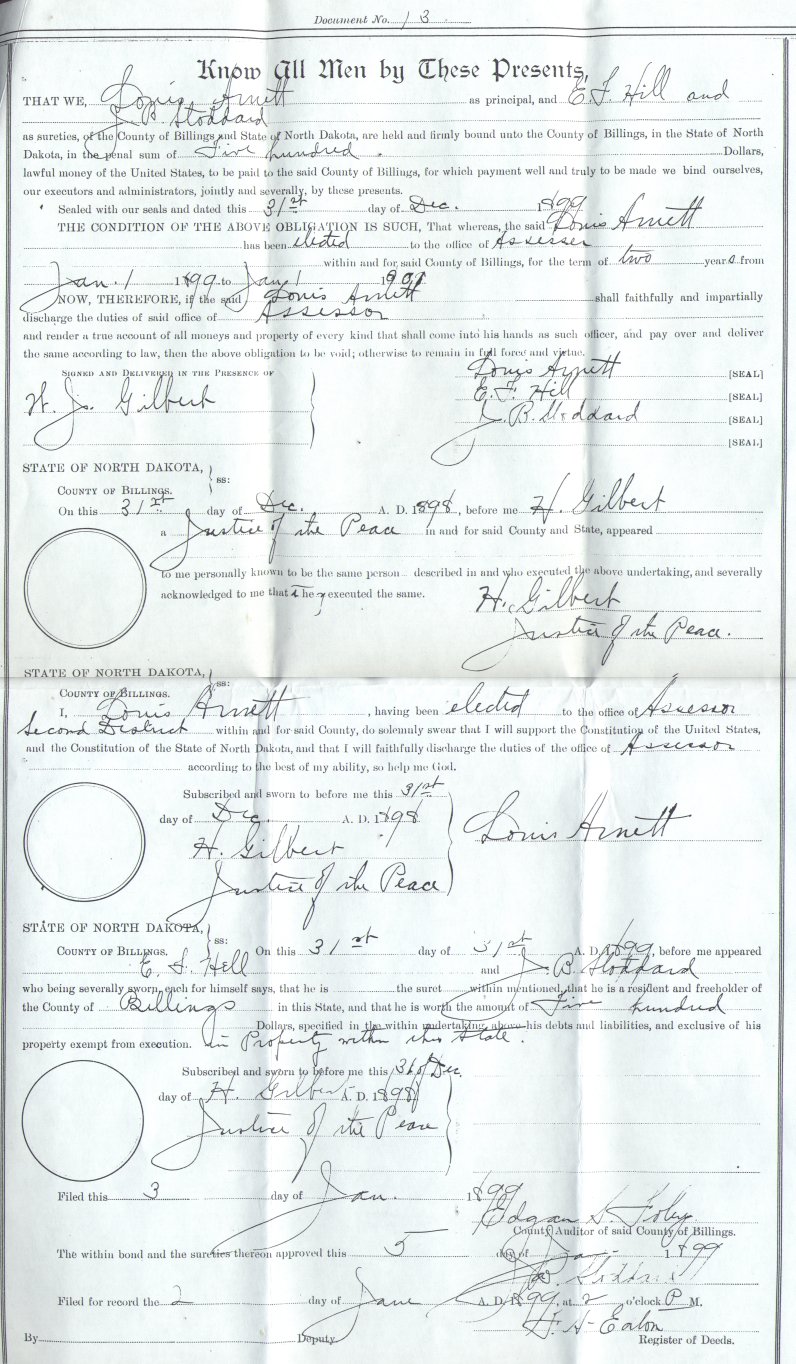 Document No. 13
Know All Men by These Presents,
THAT WE, Louis Arnett as principal, and E. F. Hill and
J. B. Stoddard
as sureties, of the County of Billings and State of North Dakota, are held and firmly bound unto the County of Billings, in the State of North
Dakota, in the penal sum of Five hundred Dollars,
lawful money of the United States, to be paid to the said County of Billings, for which payment well and truly to be made we bind ourselves,
our executors and administrators, jointly and severally, by these presents.
Sealed with our seals and dated this 31st day of Dec. 1899
THE CONDITION OF THE ABOVE OBLIGATION IS SUCH, That whereas, the said Louis Arnett
has been elected to the office of Assesser
within and for said County of Billings, for the term of two years from
Jan. 1 1899 to Jan 1 1901
NOW, THEREFORE, if the said Louis Arnett shall faithfully and impartially
discharge the duties of said office of Assessor
and render a true account of all moneys and property of every kind that shall come into his hands as such officer, and pay over and deliver
the same according to law, then the above obligation to be void; otherwise to remain in full force and virtue.
SIGNED AND DELIVERED IN THE PRESENCE OF Louis Arnett [SEAL]
H. Js. Gilbert E. F. Hill [SEAL]
J. B. Stoddard [SEAL]
[SEAL]
STATE OF NORTH DAKOTA,
ss:
COUNTY OF BILLINGS.
On this 31st day of Dec. A. D. 1898, before me H. Gilbert
a Justice of the Peace in and for said County and State, appeared
to me personally known to be the same person described in and who executed the above undertaking, and severally
acknowledged to me that they executed the same.
H. Gilbert
Justice of the Peace.
STATE OF NORTH DAKOTA,
ss:
COUNTY OF BILLINGS.
I, Louis Arnett, having been elected to the office of Assessor
Second District within and for said County, do solemnly swear that I will support the Constitution of the United States,
and the Constitution of the State of North Dakota, and that I will faithfully discharge the duties of the office of Assessor
according to the best of my ability, so help me God.
Subscribed and sworn to before me this 31st
day of Dec. A. D. 1898
H. Gilbert
Louis Arnett
Justice of the Peace
STATE OF NORTH DAKOTA,
ss:
COUNTY OF BILLINGS. On this 31st day of 31st A. D. 1899, before me appeared
E. F. Hell and J. B. Stoddard
who being severally sworn, each for himself says, that he is the suret within mentioned, that he is a resident and freeholder of
the County of Billings in this State, and that he is worth the amount of Five hundred
Dollars, specified in the within undertaking, above his debts and liabilities, and exclusive of his
property exempt from execution. in Property within this State.
Subscribed and sworn to before me this 31 of Dec.
day of H. Gilbert A. D. 1898
Justice of the Peace
Filed this 3 day of Jan. 1899
Edgar S. Foley
County Auditor of said County of Billings.
The within bond and the sureties thereon approved this 5 day of Jan 1899
Filed for record the 2 day of June A. D. 1899, at 2 o'clock P M.
F. H. Eaton
By Deputy Register of Deeds.